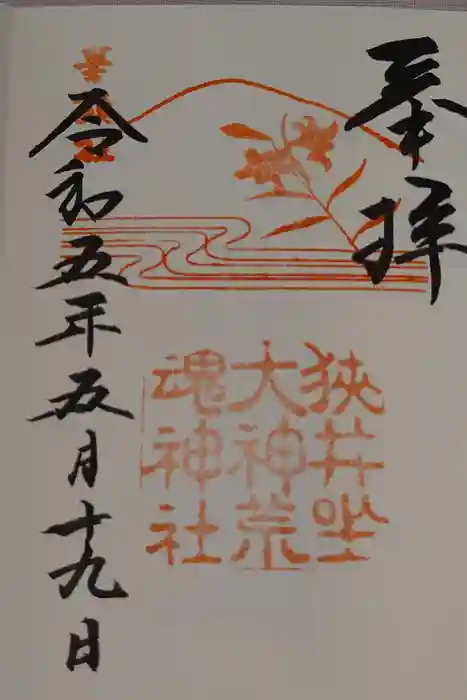 奉拝
狭井坐
大神荒
魂神社
令和五年五月十九日